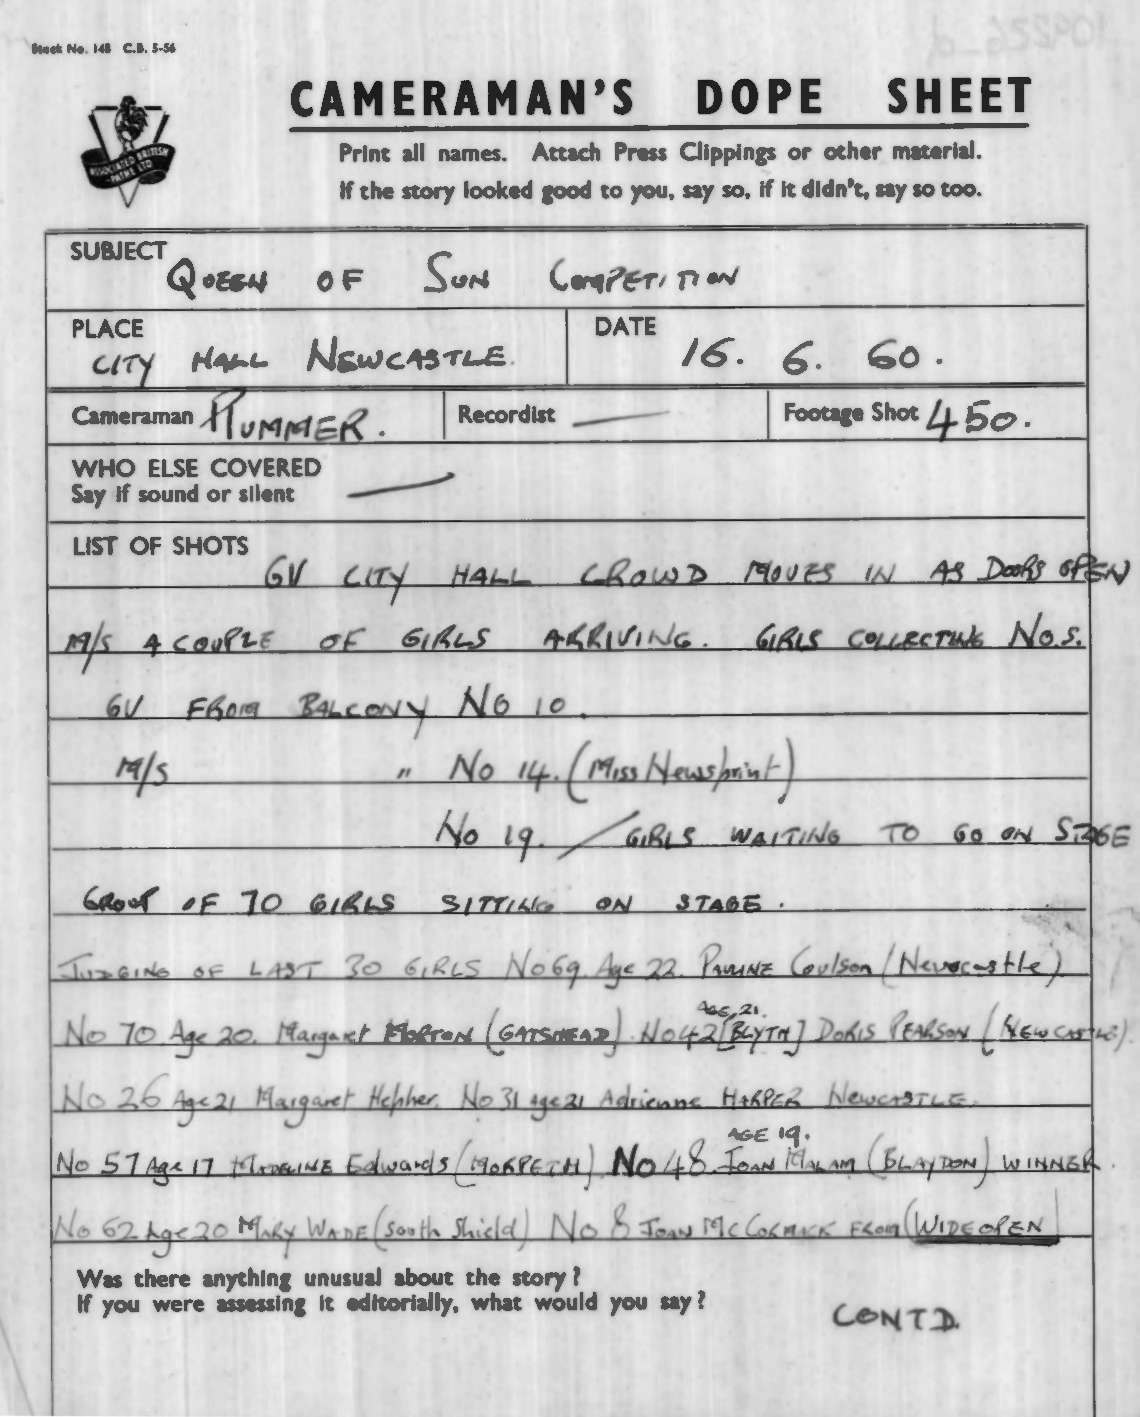 Stock No. 148 C.B. 5-56
CAMERAMAN'S DOPE SHEET
ASSOCIATED BRITISH
PATHE LTD
Print all names. Attach Press Clippings or other material.
If the story looked good to you, say so, if it didn't, say so too.
SUBJECT
QUEEN OF SUN COMPETITION
PLACE
CITY HALL NEWCASTLE.
DATE
16. 6. 60.
Cameraman PLUMMER.
Recordist —
Footage Shot 450.
WHO ELSE COVERED
Say if sound or silent —
LIST OF SHOTS
GV CITY HALL CROWD MOVES IN AS DOORS OPEN
M/S A COUPLE OF GIRLS ARRIVING. GIRLS COLLECTING NO.S.
GV FROM BALCONY NO 10.
M/S " No 14. (Miss Newsprint)
No 19. / GIRLS WAITING TO GO ON STAGE
GROUP OF 70 GIRLS SITTING ON STAGE.
JUDGING OF LAST 30 GIRLS No 69. Age 22. PAULINE Coulson (Newcastle)
AGE, 21.
No 70 Age 20. Margaret MORTON (GATSHEAD). No 42 [BLYTH] DORIS PEARSON (NEWCASTLE).
No 26 Age 21 Margaret Hepher. No 31 age 21 Adrienne HARPER NEWCASTLE.
AGE 19.
No 57 Age 17 MADELINE Edwards (MORPETH) No 48. JOAN MALAM (BLAYDON) WINNER.
No 62 Age 20 MARY WADE (South Shield) No 8 JOAN McCORMACK FROM (WIDEOPEN)
Was there anything unusual about the story?
If you were assessing it editorially, what would you say?
CONTD.